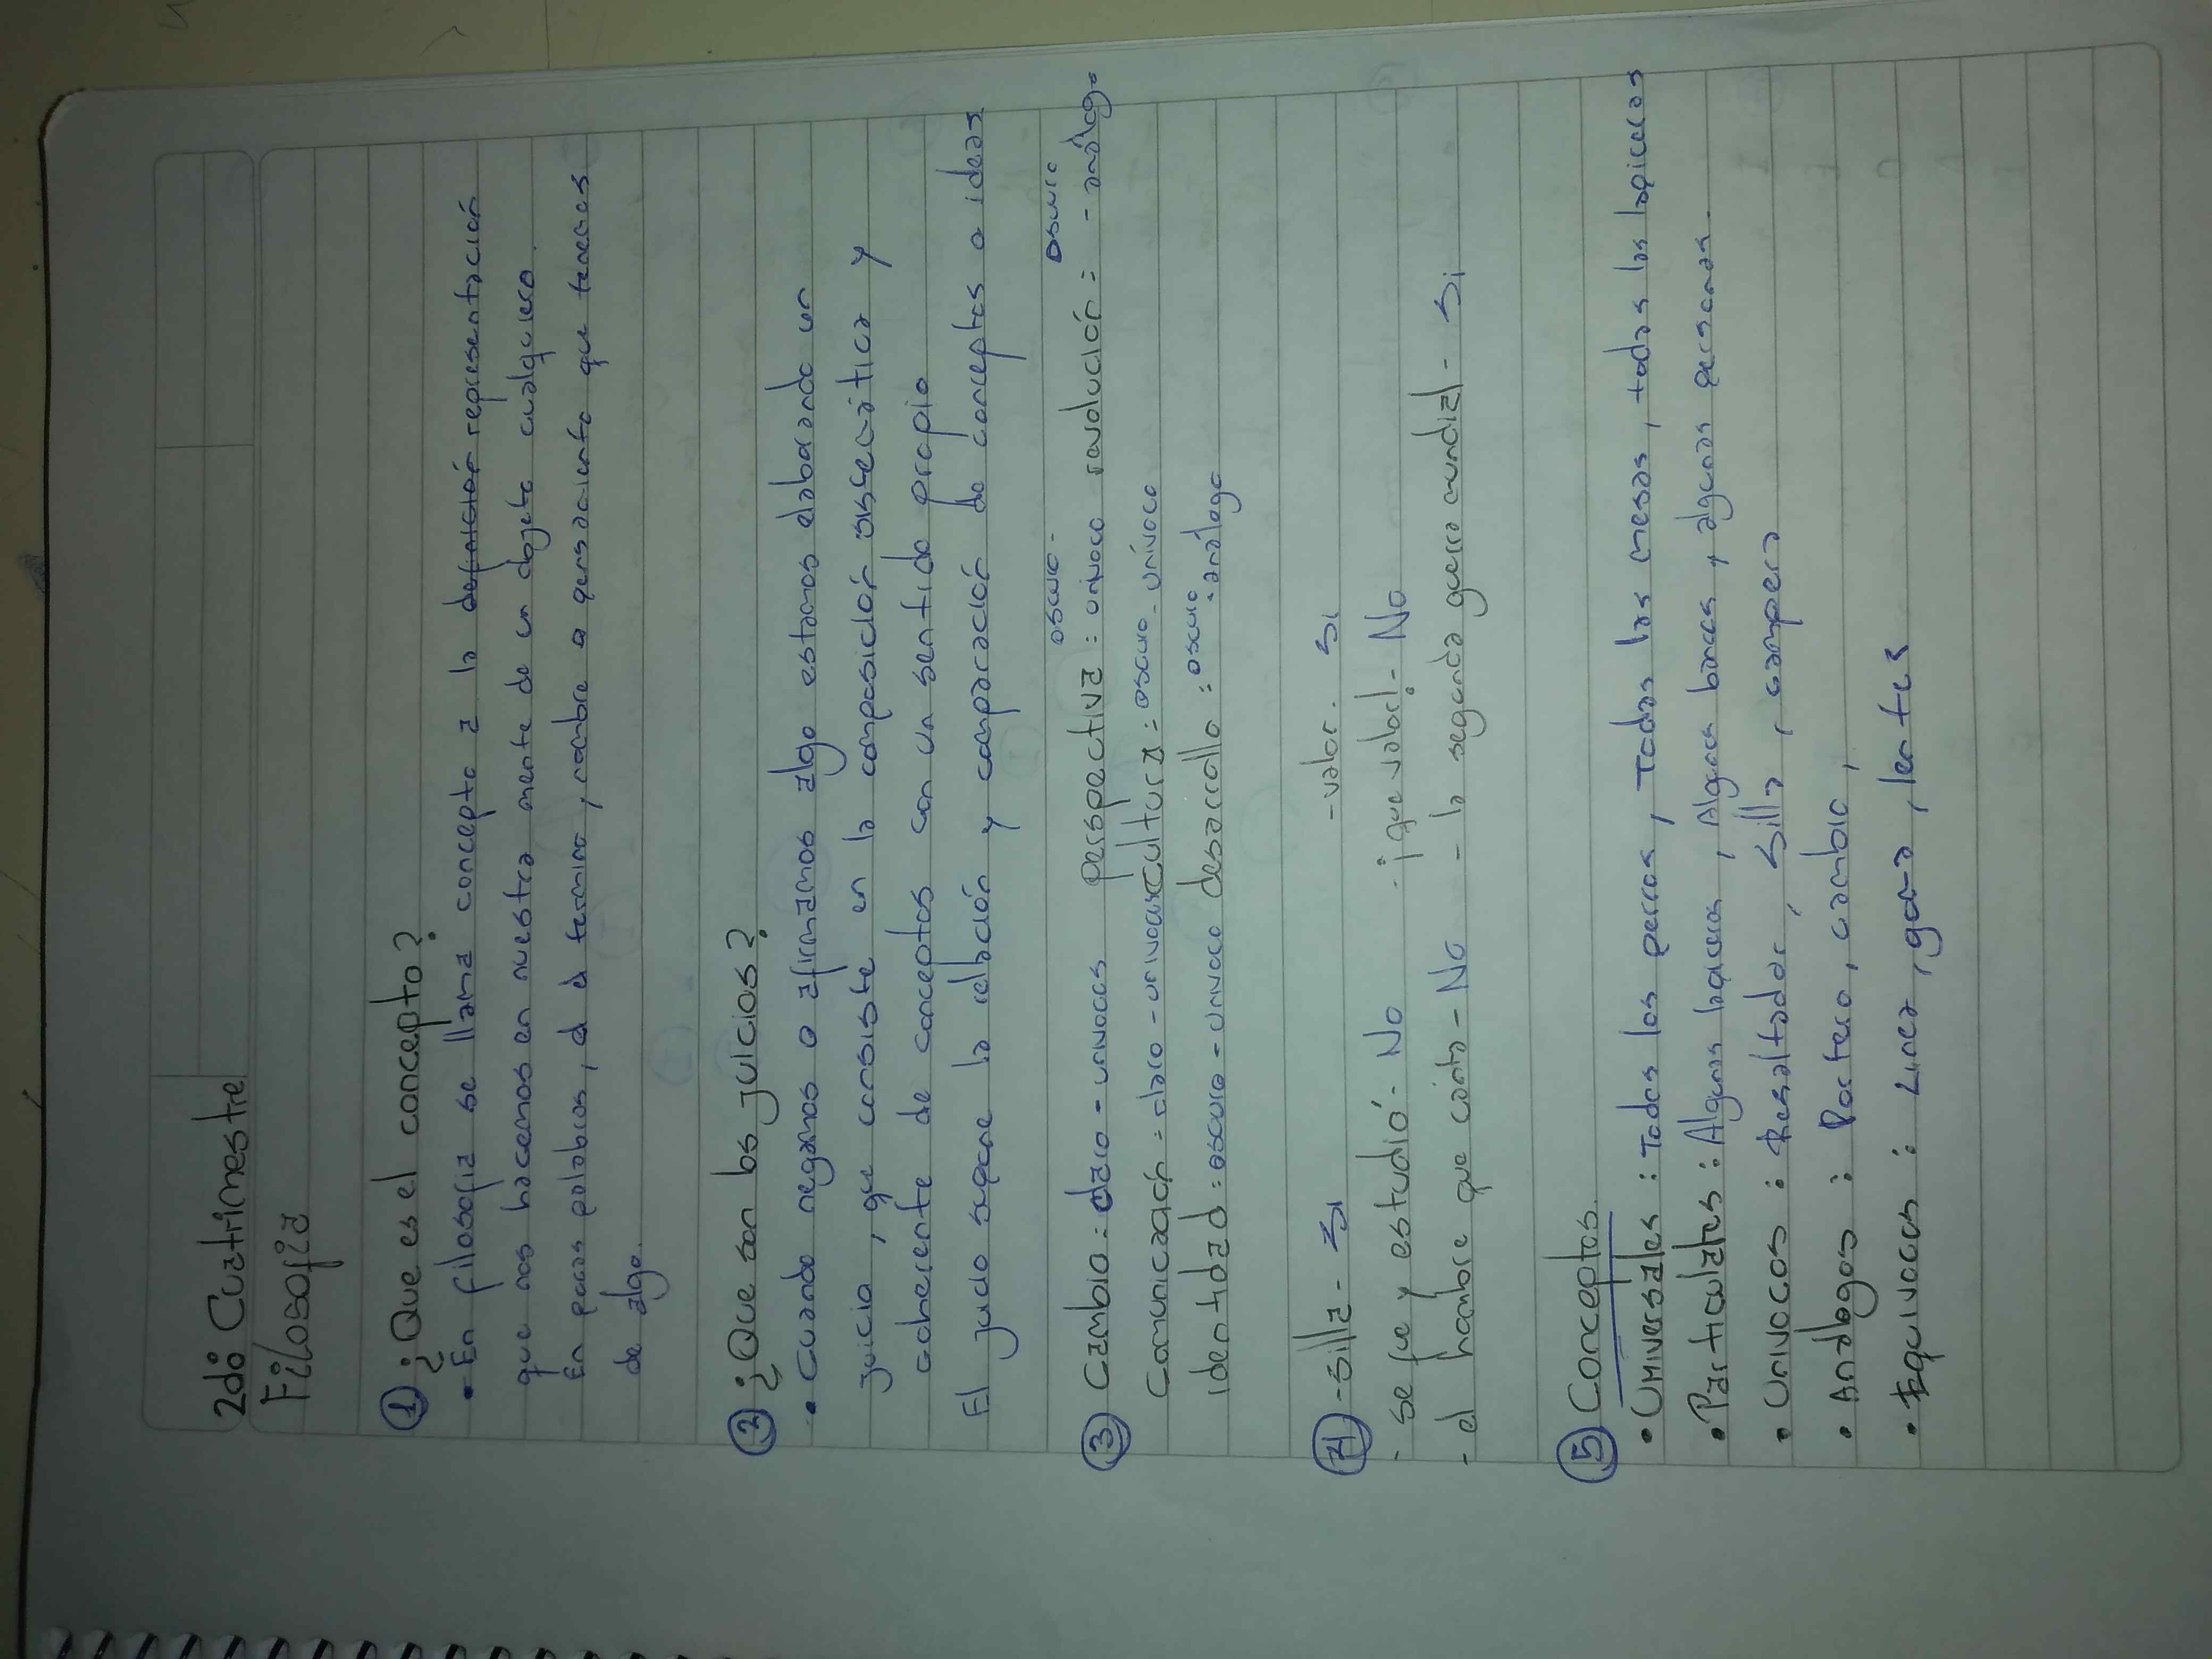 2do Cuatrimestre
Filosofia
① ¿Que es el concepto?
• En filosofia se llama concepto a la definición representación
que nos hacemos en nuestra mente de un objeto cualquiera.
En pocas palabras, el termino, nombre o pensamiento que tenemos
de algo.
② ¿Que son los juicios?
• Cuando negamos o afirmamos algo estamos elaborando un
juicio, que consiste en la composición sistemática y
coherente de conceptos con un sentido propio
El juicio supone la relación y comparación de conceptos o ideas
③ Cambio: claro - univocos perspectiva: oscuro - univoco revolución: oscuro - análogo
Comunicación: claro - univocas cultura: oscuro - univoco
identidad: oscuro - univoco desarrollo: oscuro - análogo
④ - silla - Si - valor. Si
- se fue y estudió - No - ¡que valor! - No
- el hombre que canto - No - la segunda guerra mundial - Si
⑤ Conceptos.
• Universales: Todos los perros, Todas las mesas, todos los lapiceros
• Particulares: Algunos lapiceros, Algunos bancos, algunas personas.
• Univocos: Resaltador, Silla, campera
• Análogos: Portero, cambio,
• Equivocos: Linea, goma, lentes